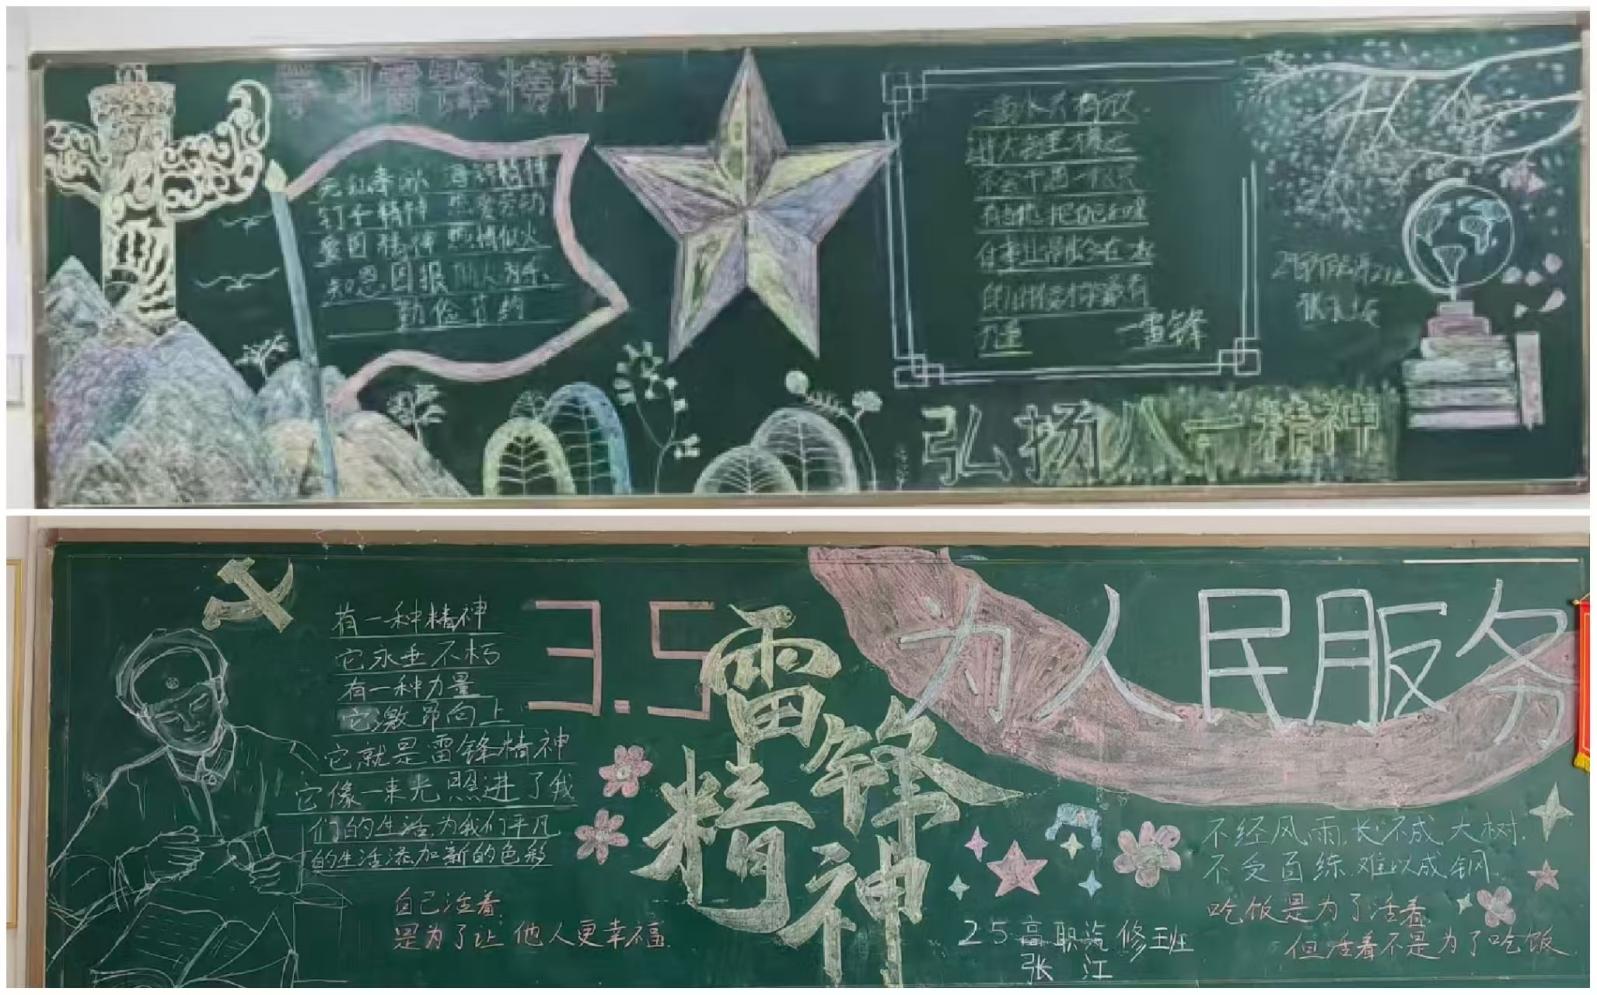 学习雷锋榜样
无私奉献 
钉子精神 热爱劳动
爱国精神 热情似火
知恩回报 助人为乐
勤俭节约
一滴水只有放
进大海里
有当他把自己和集
体事业
力量
—雷锋
弘扬八一精神
3.5
雷锋
精神
为人民服务
有一种精神
它永垂不朽
有一种力量
它激昂向上
它就是雷锋精神
它像一束光照进了我
们的生活,为我们平凡
的生活添加新的色彩
自己活着,
是为了让他人更幸福.
不经风雨,长不成大树.
不受百练,难以成钢.
吃饭是为了活着,
但活着不是为了吃饭.
25高职汽修班
张江